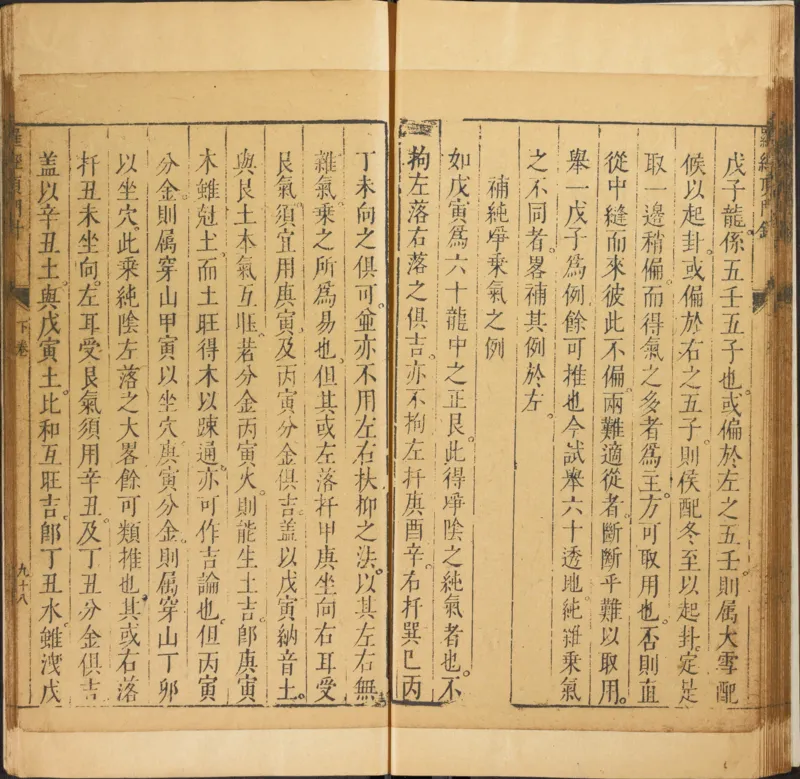 羅經頂門針
戊子龍係五壬五子也或偏於左之五壬則属大雪配
候以起卦或偏於右之五子則侯配冬至以起卦定是
取一邊稍偏而得氣之多者為主方可取用也否則直
從中縫而來彼此不偏兩難適從者斷斷乎難以取用
舉一戊子為例餘可推也今試舉六十透地純雜乘氣
之不同者畧補其例於左
補純爭乘氣之例
如戊寅為六十龍中之正艮此得爭陰之純氣者也不
拘左落右落之俱吉亦不拘左扦庚酉辛右扦巽巳丙
丁未向之俱可並亦不用左右扶抑之法以其左右無
雜氣乘之所為易也但其或左落扦甲庚坐向右耳受
艮氣須宜用庚寅及丙寅分金俱吉盖以戊寅納音土
與艮土本氣互旺若分金丙寅火則能生土吉卽庚寅
木雖尅土而土旺得木以踈通亦可作吉論也但丙寅
分金則属穿山甲寅以坐穴庚寅分金則属穿山丁卯
以坐穴此乘純陰左落之大畧餘可類推也其或右落
扦丑未坐向左耳受艮氣須用辛丑及丁丑分金俱吉
盖以辛丑土與戊寅土比和互旺吉卽丁丑水雖洩戊
羅經頂門針
下卷
九十八